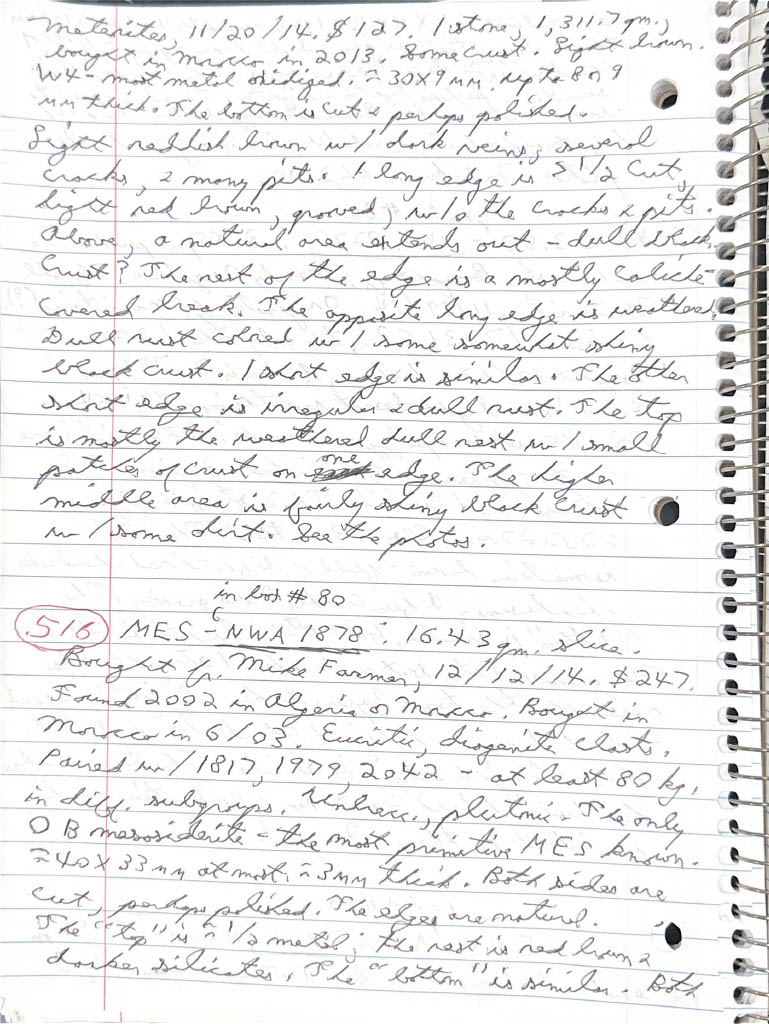 Meteorites, 11/20/14. $127. 1 stone, 1,311.7 gm.,
bought in Morocco in 2013. Some crust. Light brown.
W4 - most metal oxidized. ≈ 30X9 mm. up to 8 or 9
mm thick. The bottom is cut & perhaps polished.
Light reddish brown w/ dark veins, several
cracks, & many pits. 1 long edge is > 1/2 cut,
light red brown, grooved, w/o the cracks & pits.
Above, a natural area extends out - dull black.
Crust? The rest of the edge is a mostly caliche
covered break. The opposite long edge is weathered.
Dull rust colored w/ some somewhat shiny
black crust. 1 short edge is similar. The other
short edge is irregular & dull rust. The top
is mostly the weathered dull rest w/ small
patches of crust on one edge. The higher
middle area is fairly shiny black crust
w/some dirt. See the photos.
in box # 80
516 MES - NWA 1878: 16.43 gm. slice.
Bought fr. Mike Farmer, 12/12/14. $247.
Found 2002 in Algeria or Morocco. Bought in
Morocco in 6/03. Eucritic, diogenite clasts.
Paired w/1817, 1979, 2042 - at least 80 kg,
in diff. subgroups. Unbrecc., plutonic. The only
0 B mesosiderite - the most primitive MES known.
≈40X33mm at most. ≈3mm thick. Both sides are
cut, perhaps polished. The edges are natural.
The "top" is ≈ 1/2 metal; the rest is red brown &
darker silicates. The "bottom" is similar. Both